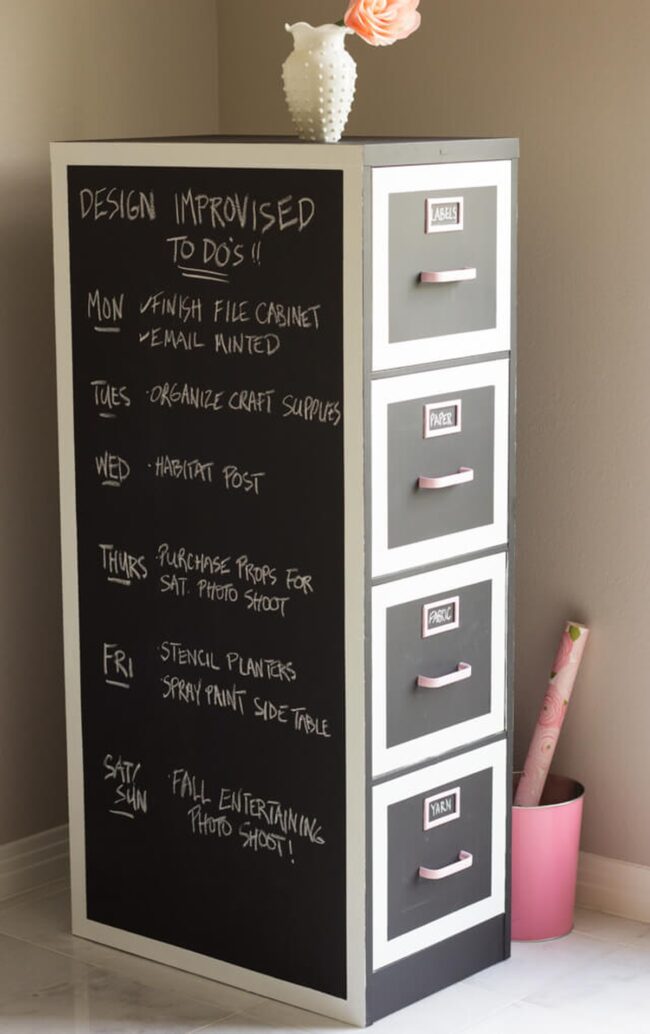 DESIGN IMPROVISED
TO DO'S!!
MON ✓FINISH FILE CABINET
✓EMAIL MINTED
TUES ·ORGANIZE CRAFT SUPPLIES
WED ·HABITAT POST
THURS ·PURCHASE PROPS FOR
SAT. PHOTO SHOOT
FRI ·STENCIL PLANTERS
·SPRAY PAINT SIDE TABLE
SAT/
SUN ·FALL ENTERTAINING
PHOTO SHOOT!
LABELS
PAPER
FABRIC
YARN